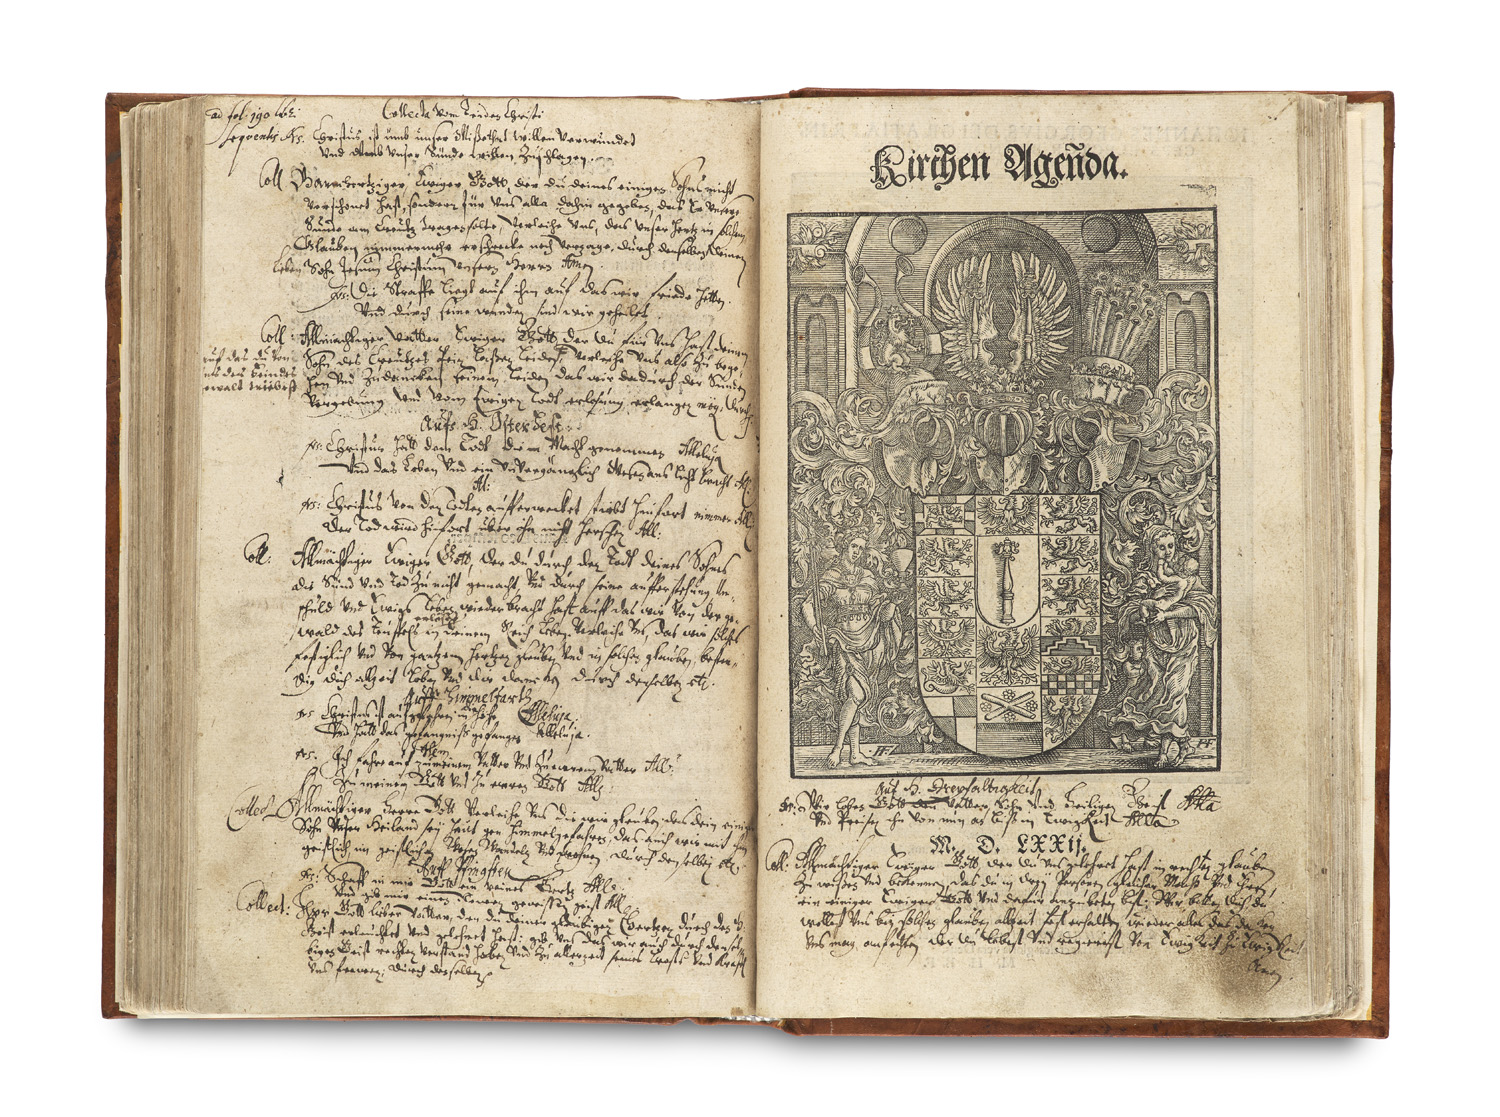 ad fol. 190
Collecta vom Leiden Christi
sequentis Rs. Christus ist umb unser Missethat willen verwundet
Und umb unser Sünde willen zuschlagen.
Coll Barmhertziger, Ewiger Gott, der du deines einigen Sohns nicht
verschonet hast, sondern für uns alle dahin gegeben, das Er unsere
Sünde am Creutz tragen solte, Verleihe uns, das unser Hertz in solchem
Glauben nimmermehr erschrecke noch verzage, durch denselben deinen
lieben Sohn Jesum Christum unsern Herrn Amen
Rs: Die Straffe liegt auf ihm auf das wir friede hetten.
Und durch seine wunden sind wir geheilet.
Coll: Allmechtiger Vatter Ewiger Gott der du für uns hast deinen
Sohn des Creutzes Pein leiden lassen, Verleihe uns also zu bege-
auf das du von
uns des feindes
gewalt triebest
hen und zudancken seinem Leiden das wir dadurch der Sünden
Vergebung und vom Ewigen Todt erlösung erlangen mög, durch
Aufs H. Osterfest.
Rs: Christus hatt dem Todt die Macht genommen Alleluja
Und das Leben und ein unvergänglich Wesen ans Licht bracht All.
Al:
Rs: Christus von den Todten aufferwecket stirbt hinfort nimmer All:
Der Tod wird hinfort über ihn nicht herschen All:
Coll: Allmächtiger Ewiger Gott, der du durch den Todt deines Sohnes
die Sünd und Tod zu nicht gemacht, und durch seine aufferstehung un-
schuld und Ewiges Leben wiederbracht hast auff das wir von der ge-
erlöset
wald des Teuffels in deinem Reich leben. Verleihe uns, das wir solches
festiglich und von gantzem hertzen glauben und in solchem glauben, besten-
dig dich allzeit loben und dir dancken durch denselben etc.
Auff Himmelfarth
Rs Christus ist auffgefahren in die Höhe, Alleluja.
Und hatt das gefängniss gefangen Alleluja.
Alem
Rs. Ich fahre auf zu meinem Vatter und zu eurem Vatter All:
Zu meinem Gott und zu eurem Gott All:
Collect Allmächtiger Herre Gott Verleihe uns die wir glauben das dein einiger
Sohn unser Heiland sey heut gen Himmel gefahren, das auch wir mit ihm
geistlich im geistlichen Wesen wandeln und wohnen, durch denselben etc.
Auff Pfingsten
Rs. Schaff in mir Gott ein reines Hertz All:
Und gib mir einen Neuen gewissen geist All:
Collect: Herr Gott lieber Vatter, der du deiner gläubigen Hertzen durch den H.
Geist erleuchtet und gelehret hast: gib uns das wir auch durch densel-
bigen Geist rechten verstand haben und zu allerzeit seines Trosts und Krafft
uns frewen: durch denselben
Kirchen Agenda.
HF
HF
Auf H. Dreyfaltigkeit
Rs: Wir loben Gott Vatter, Sohn und Heiligen Geist Alla
Und Preisen ihn von nun an bis in Ewigkeit Alla
M. D. LXXij.
Coll: Allmächtiger Ewiger Gott der du uns gelehret hast in rechtem glauben
Zu wissen und bekennen, das du in drey Personen gleicher Macht und Ehren,
ein einiger Ewiger Gott und dafür anzubeten bist: Wir bitten dich du
wollest uns bey solchem glauben allzeit fest erhalten, wieder alles das da ken
uns mag anfechten der du lebest und regierest von Ewigkeit zu Ewigkeit
Amen.